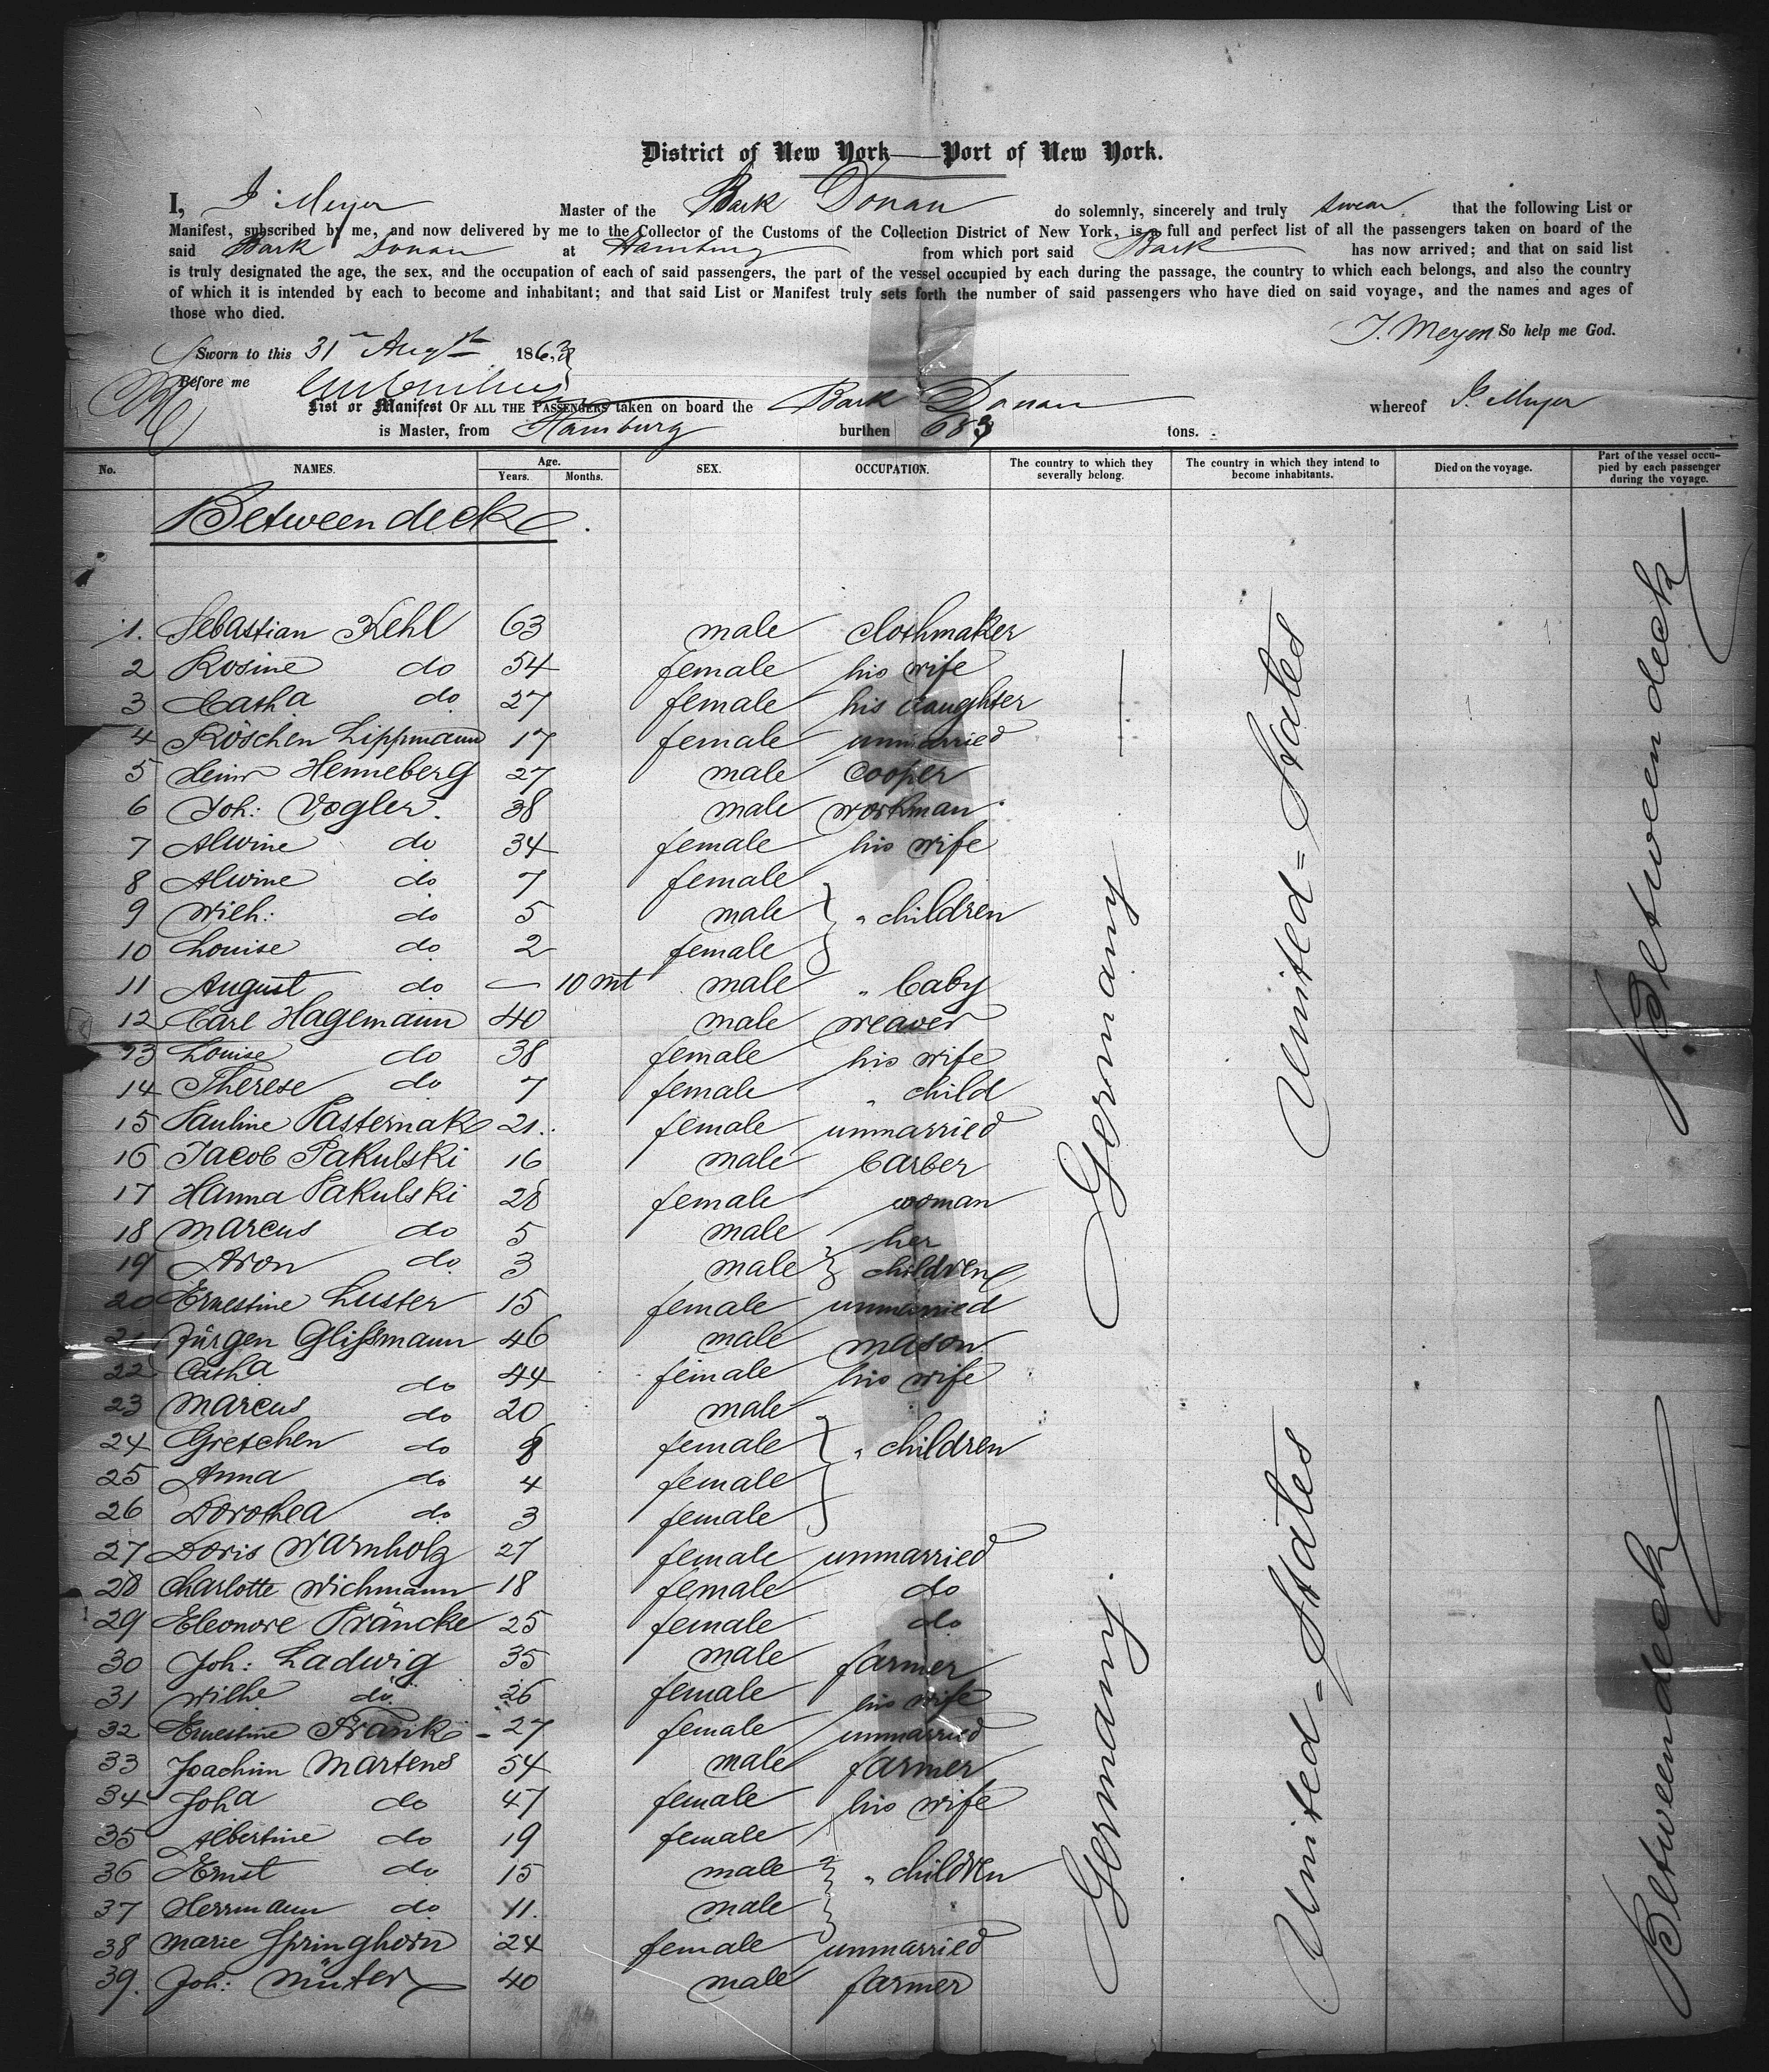 District of New York—Port of New York.
I, J. Meyer Master of the Bark Donau do solemnly, sincerely and truly swear that the following List or
Manifest, subscribed by me, and now delivered by me to the Collector of the Customs of the Collection District of New York, is a full and perfect list of all the passengers taken on board of the
said Bark Donau at Hamburg from which port said Bark has now arrived; and that on said list
is truly designated the age, the sex, and the occupation of each of said passengers, the part of the vessel occupied by each during the passage, the country to which each belongs, and also the country
of which it is intended by each to become and inhabitant; and that said List or Manifest truly sets forth the number of said passengers who have died on said voyage, and the names and ages of
those who died.
J. Meyer So help me God.
Sworn to this 31st Augst 1863
Before me
List or Manifest OF ALL THE PASSENGERS taken on board the Bark Donau whereof J. Meyer
is Master, from Hamburg burthen 683 tons.
No. NAMES. Age. Years. Months. SEX. OCCUPATION. The country to which they severally belong. The country in which they intend to become inhabitants. Died on the voyage. Part of the vessel occupied by each passenger during the voyage.
Between deck.
1. Sebastian Kehl 63 male clothmaker
2 Rosine do 54 female his wife
3 Catha do 27 female his daughter
4 Röschen Lippmann 17 female unmarried
5 Heinr Henneberg 27 male cooper
6 Joh: Vogler. 38 male workman
7 Alwine do 34 female his wife
8 Alwine do 7 female
9 Wilh: do 5 male " children
10 Louise do 2 female
11 August do — 10 mt male " baby
12 Carl Hagemann 40 male weaver
13 Louise do 38 female his wife
14 Therese do 7 female " child
15 Pauline Pasternak 21. female unmarried
16 Jacob Pakulski 16 male barber
17 Hanna Pakulski 28 female woman
18 Marcus do 5 male her
19 Aron do 3 male children
20 Ernestine Luster 15 female unmarried
21 Jürgen Glißmann 46 male mason
22 Catha do 44 female his wife
23 Marcus do 20 male
24 Gretchen do 8 female " children
25 Anna do 4 female
26 Dorothea do 3 female
27 Doris Warnholz 27 female unmarried
28 Charlotte Wichmann 18 female do
29 Eleonore Präncke 25 female do
30 Joh: Ladwig 35 male farmer
31 Wilhe do. 26 female his wife
32 Ernestine Frank 27 female unmarried
33 Joachim Martens 54 male farmer
34 Joha do 47 female his wife
35 Albertine do 19 female
36 Ernst do 15 male " children
37 Herrmann do 11. male
38 Marie Springhorn 24 female unmarried
39. Joh: Müter 40 male farmer
Germany
Germany.
United=States
United=States
Between deck
Between deck